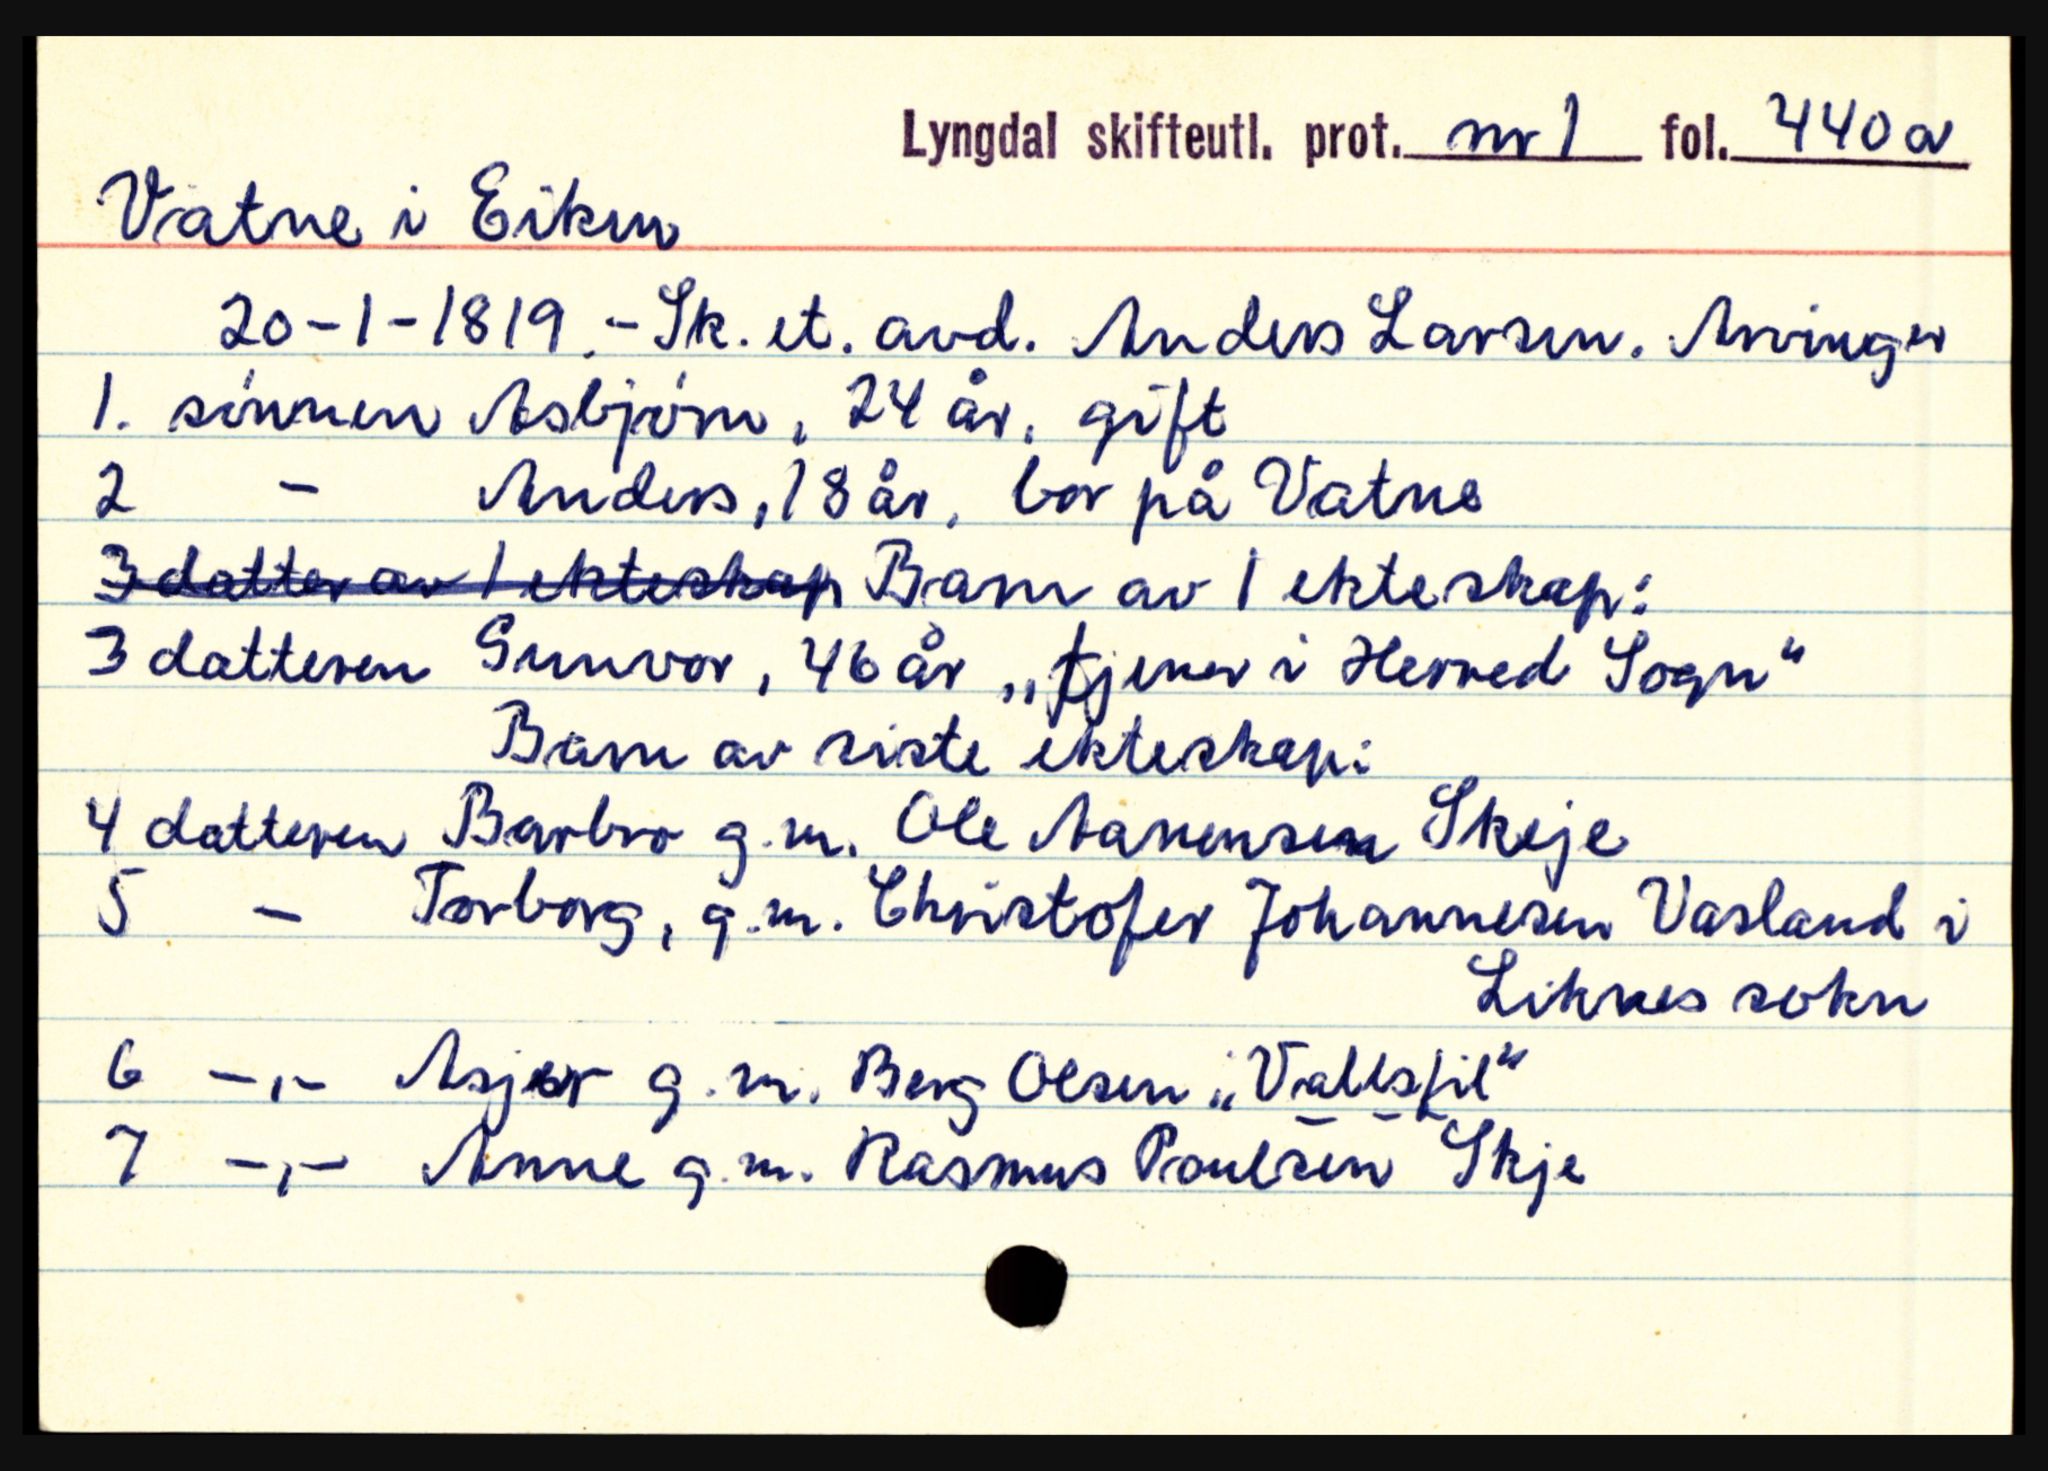 Lyngdal skifteutl. prot. nr 1 fol. 440a
Vatne i Eiken
20-1-1819.-Sk. et. avd. Anders Larsen. Arvinger
1. sönnen Asbjörn, 24 år, gift
2 - Anders, 18 år, bor på Vatne
3 datter av 1 ekteskap Barn av 1 ekteskap:
3 datteren Gunvor, 46 år „tjener i Herred Sogn“
Barn av siste ekteskap:
4 datteren Barbro g.m. Ole Aanensen Skeje
5 - Torborg, g.m. Christofer Johannesen Vasland i
Liknes sokn
6 -,- Asjer g.m. Berg Olsen „Vallsfil“
7 -,- Anne g.m. Rasmus Poulsen Skje